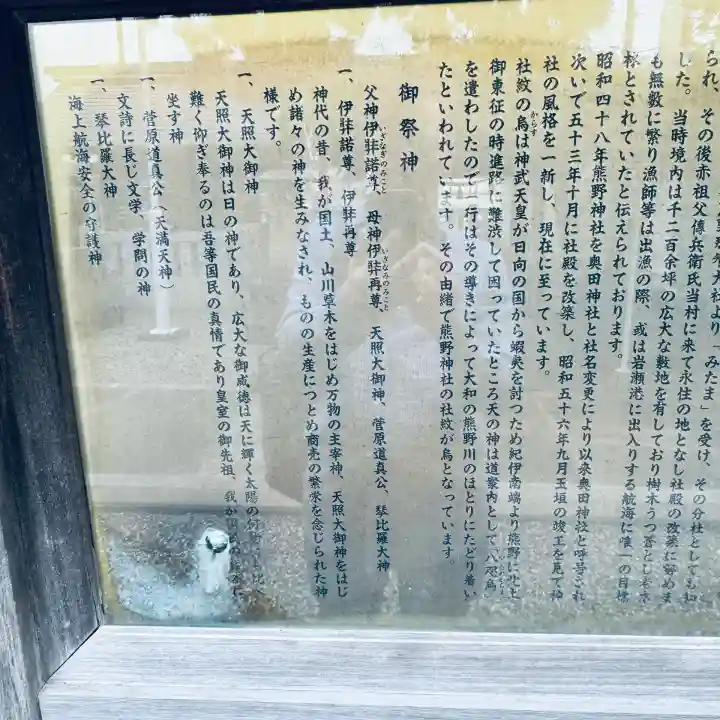 られ、その後赤祖父傳兵衛氏当村に来て永住の地となし社殿の改築に努めま
した。当時境内は千二百余坪の広大な敷地を有しており樹木うつ蒼とし老木
も無数に繁り漁師等は出漁の際、或は岩瀬港に出入りする航海に唯一の目標
とされていたと伝えられております。
昭和四十八年熊野神社を奥田神社と社名変更により以来奥田神社と呼号され
次いで五十三年十月に社殿を改築し、昭和五十六年九月玉垣の竣工を見て神
社の風格を一新し、現在に至っています。
社紋の烏は神武天皇が日向の国から蝦夷を討つため紀伊南端より熊野に上
からす
御東征の時進路に難渋して困っていたところ天の神は道案内として「八咫烏」
を遣わしたので一行はその導きによって大和の熊野川のほとりにたどり着い
たといわれています。その由緒で熊野神社の社紋が烏となっています。
御祭神
父神伊弉諾尊、母神伊弉再尊、天照大御神、菅原道真公、琴比羅大神
いざなぎのみこと いざなみのみこと
一、伊弉諾尊、伊弉再尊
神代の昔、我が国土、山川草木をはじめ万物の主宰神、天照大御神をはじ
め諸々の神を生みなされ、ものの生産につとめ商売の繁栄を念じられた神
様です。
一、天照大御神
天照大御神は日の神であり、広大な御威徳は天に輝く太陽の
難く仰ぎ奉るのは吾等国民の真情であり皇室の御先祖、我が
坐す神
一、菅原道真公（天満天神）
文詩に長じ文学、学問の神
一、琴比羅大神
海上航海安全の守護神